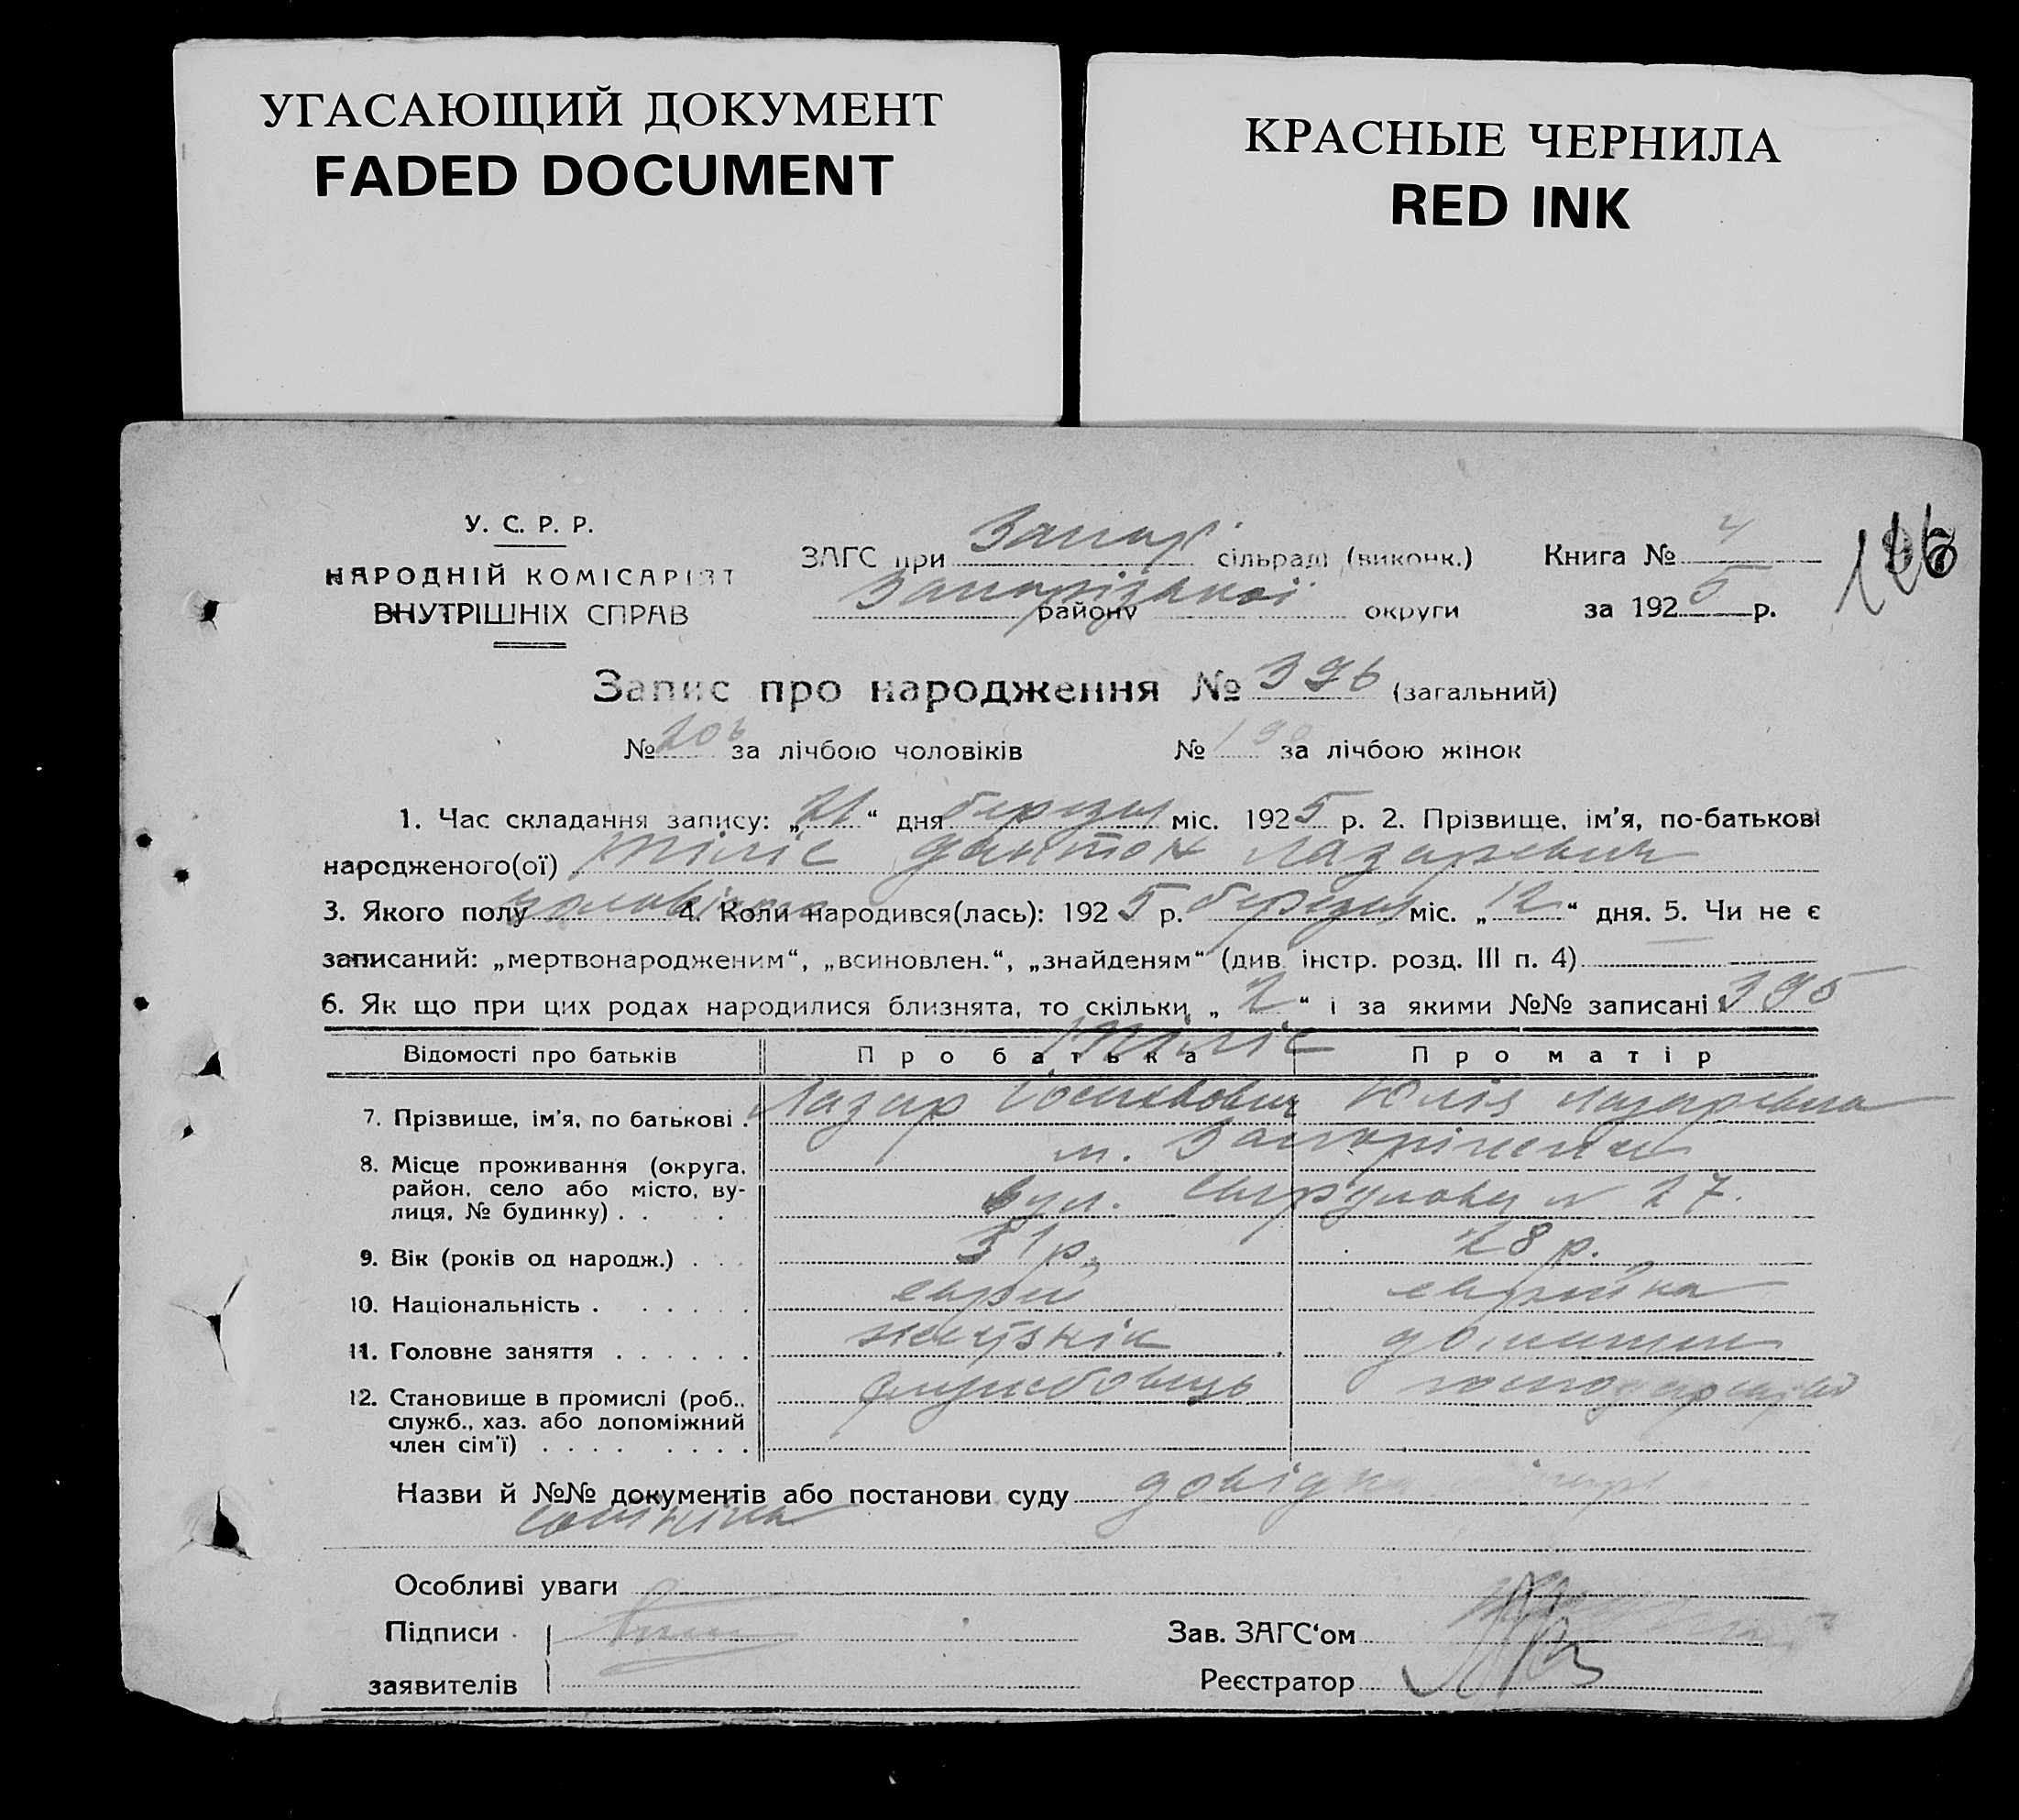 УГАСАЮЩИЙ ДОКУМЕНТ
FADED DOCUMENT
КРАСНЫЕ ЧЕРНИЛА
RED INK
У. С. Р. Р.
НАРОДНІЙ КОМІСАРІЯТ
ВНУТРІШНІХ СПРАВ
ЗАГС при Запор сільраді (виконк.)
району Запорізької округи
Книга № 4
за 1925 р.
126
Запис про народження № 396 (загальний)
№ 206 за лічбою чоловіків № 190 за лічбою жінок
1. Час складання запису: „21“ дня березня міс. 1925 р. 2. Прізвище, ім’я, по-батькові
народженого(ої) Тіліс Дантон Лазаревич
3. Якого полу чоловічого 4. Коли народився(лась): 1925 р. березня міс. „12“ дня. 5. Чи не є
записаний: „мертвонародженим“, „всиновлен.“, „знайденям“ (див. інстр. розд. III п. 4)
6. Як що при цих родах народилися близнята, то скільки „2“ і за якими №№ записані 395
Відомості про батьків Про батька Про матір
Тіліс
7. Прізвище, ім’я, по батькові . Лазар Йосипович Юлія Лазаревна
8. Місце проживання (округа, район, село або місто, вулиця, № будинку) . . м. Запоріжжя
вул. № 27.
9. Вік (років од народж.) . . . 31 р. 28 р.
10. Національність . . . . . . єврей єврейка
11. Головне заняття . . . . . . домашнє
12. Становище в промислі (роб., служб., хаз. або допоміжний член сім’ї) . . . . службовець господарство
Назви й №№ документів або постанови суду довідка
Особливі уваги
Підписи
заявителів
Зав. ЗАГС‘ом
Реєстратор